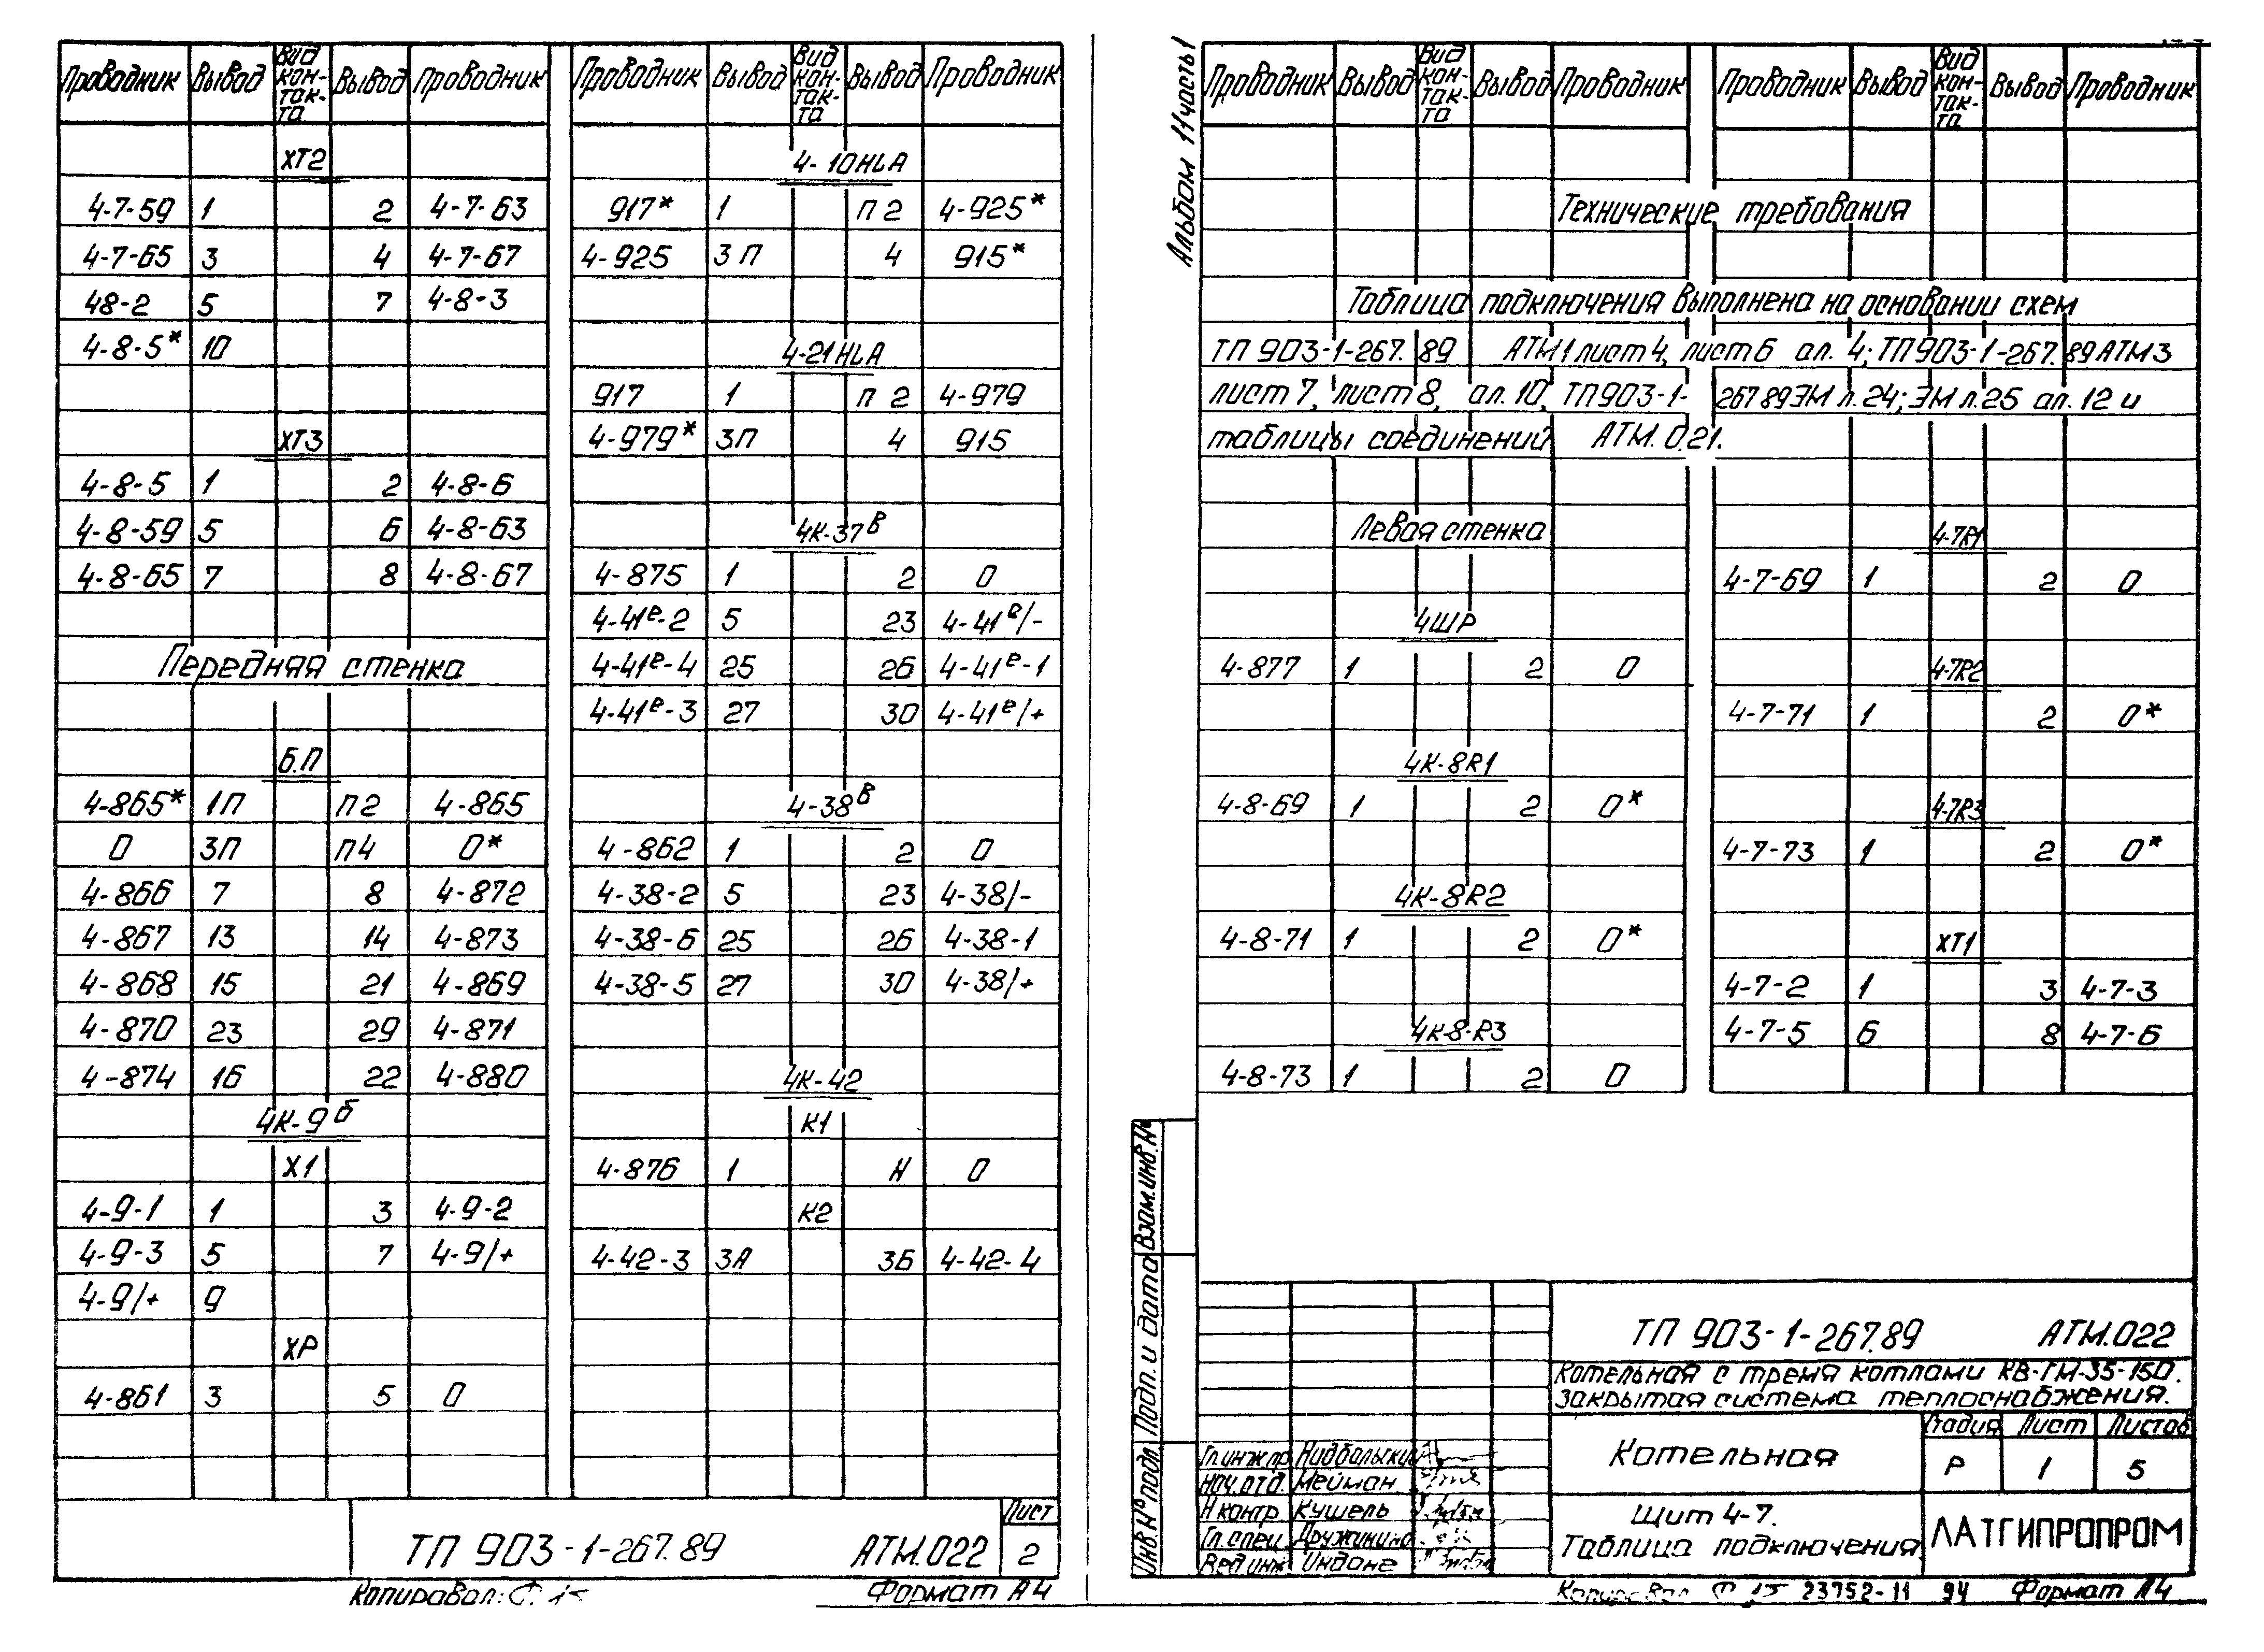 Проводник Вывод Вид кон-так-та Вывод Проводник
ХТ2
4-7-59 1 2 4-7-63
4-7-65 3 4 4-7-67
48-2 5 7 4-8-3
4-8-5* 10
ХТ3
4-8-5 1 2 4-8-6
4-8-59 5 6 4-8-63
4-8-65 7 8 4-8-67
Передняя стенка
Б.П
4-865* 1П П2 4-865
0 3П П4 0*
4-866 7 8 4-872
4-867 13 14 4-873
4-868 15 21 4-869
4-870 23 29 4-871
4-874 16 22 4-880
4К-9б
Х1
4-9-1 1 3 4-9-2
4-9-3 5 7 4-9/+
4-9/+ 9
ХР
4-861 3 5 0
Проводник Вывод Вид кон-так-та Вывод Проводник
4-10HLA
917* 1 П2 4-925*
4-925 3П 4 915*
4-21HLA
917 1 П2 4-979
4-979* 3П 4 915
4К-37в
4-875 1 2 0
4-41в-2 5 23 4-41в/-
4-41в-4 25 26 4-41в-1
4-41в-3 27 30 4-41в/+
4-38в
4-862 1 2 0
4-38-2 5 23 4-38/-
4-38-6 25 26 4-38-1
4-38-5 27 30 4-38/+
4К-42
К1
4-876 1 Н 0
К2
4-42-3 3А 3Б 4-42-4
Лист
ТП 903-1-267.89 АТМ.022 2
Копировал:
Формат А4
Альбом 11 часть 1
Проводник Вывод Вид кон-так-та Вывод Проводник
Проводник Вывод Вид кон-так-та Вывод Проводник
Технические требования
Таблица подключения выполнена на основании схем
ТП 903-1-267.89 АТМ1 лист 4, лист 6 ал. 4; ТП 903-1-267.89 АТМ3
лист 7, лист 8, ал. 10, ТП 903-1-267 89 ЭМ л. 24; ЭМ л.25 ал. 12 и
таблицы соединений АТМ.021.
Левая стенка
4ШР
4-877 1 2 0
4К-8R1
4-8-69 1 2 0*
4К-8R2
4-8-71 1 2 0*
4К-8-R3
4-8-73 1 2 0
4-7R1
4-7-69 1 2 0
4-7R2
4-7-71 1 2 0*
4-7R3
4-7-73 1 2 0*
ХТ1
4-7-2 1 3 4-7-3
4-7-5 6 8 4-7-6
Взам.инв.№
Подп. и дата
Инв.№ подл.
ТП 903-1-267.89 АТМ.022
Котельная с тремя котлами КВ-ГМ-35-150.
Закрытая система теплоснабжения.
Котельная
Стадия Лист Листов
Р 1 5
Щит 4-7.
Таблица подключения.
ЛАТГИПРОПРОМ
Гл.инж.пр
Нач.отд. Мейман
Н контр Кушель
Гл.спец. Дружинина
Вед.инж Индане
23752-11 94 Формат А4